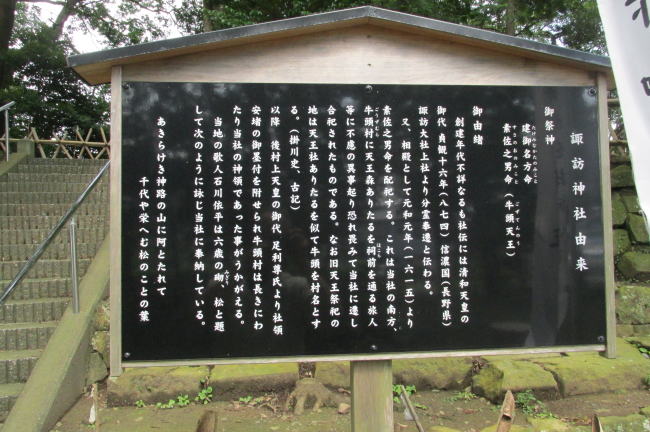 諏訪神社由来
御祭神
建御名方命
たけみなかたのみこと
素佐之男命（牛頭天王）
すさのおのみこと　ごずてんのう
御由緒
創建年代不詳なるも社伝には清和天皇の
御代 貞観十六年（八七四）信濃国（長野県）
諏訪大社上社より分霊奉遷と伝わる。
又、相殿として元和元年（一六一五）より
素佐之男命を配祀する。これは当社の南方、
牛頭村に天王森ありたるを祠前を通る旅人
ほこら
等に不慮の異事起り恐れ畏みて当社に遷し
合祀されたものである。なお旧天王祭祀の
地は天王社ありたるを似て牛頭を村名とす
る。（掛川史、古記）
以降 後村上天皇の御代 足利尊氏より社領
安堵の御墨付を附せられ牛頭村は長きにわ
たり当社の神領であった事がうかがえる。
当地の歌人石川依平は六歳の砌、松と題
みぎり
して次のように詠じ当社に奉納している。
あきらけき神路の山に阿とたれて
千代や栄へむ松のことの葉